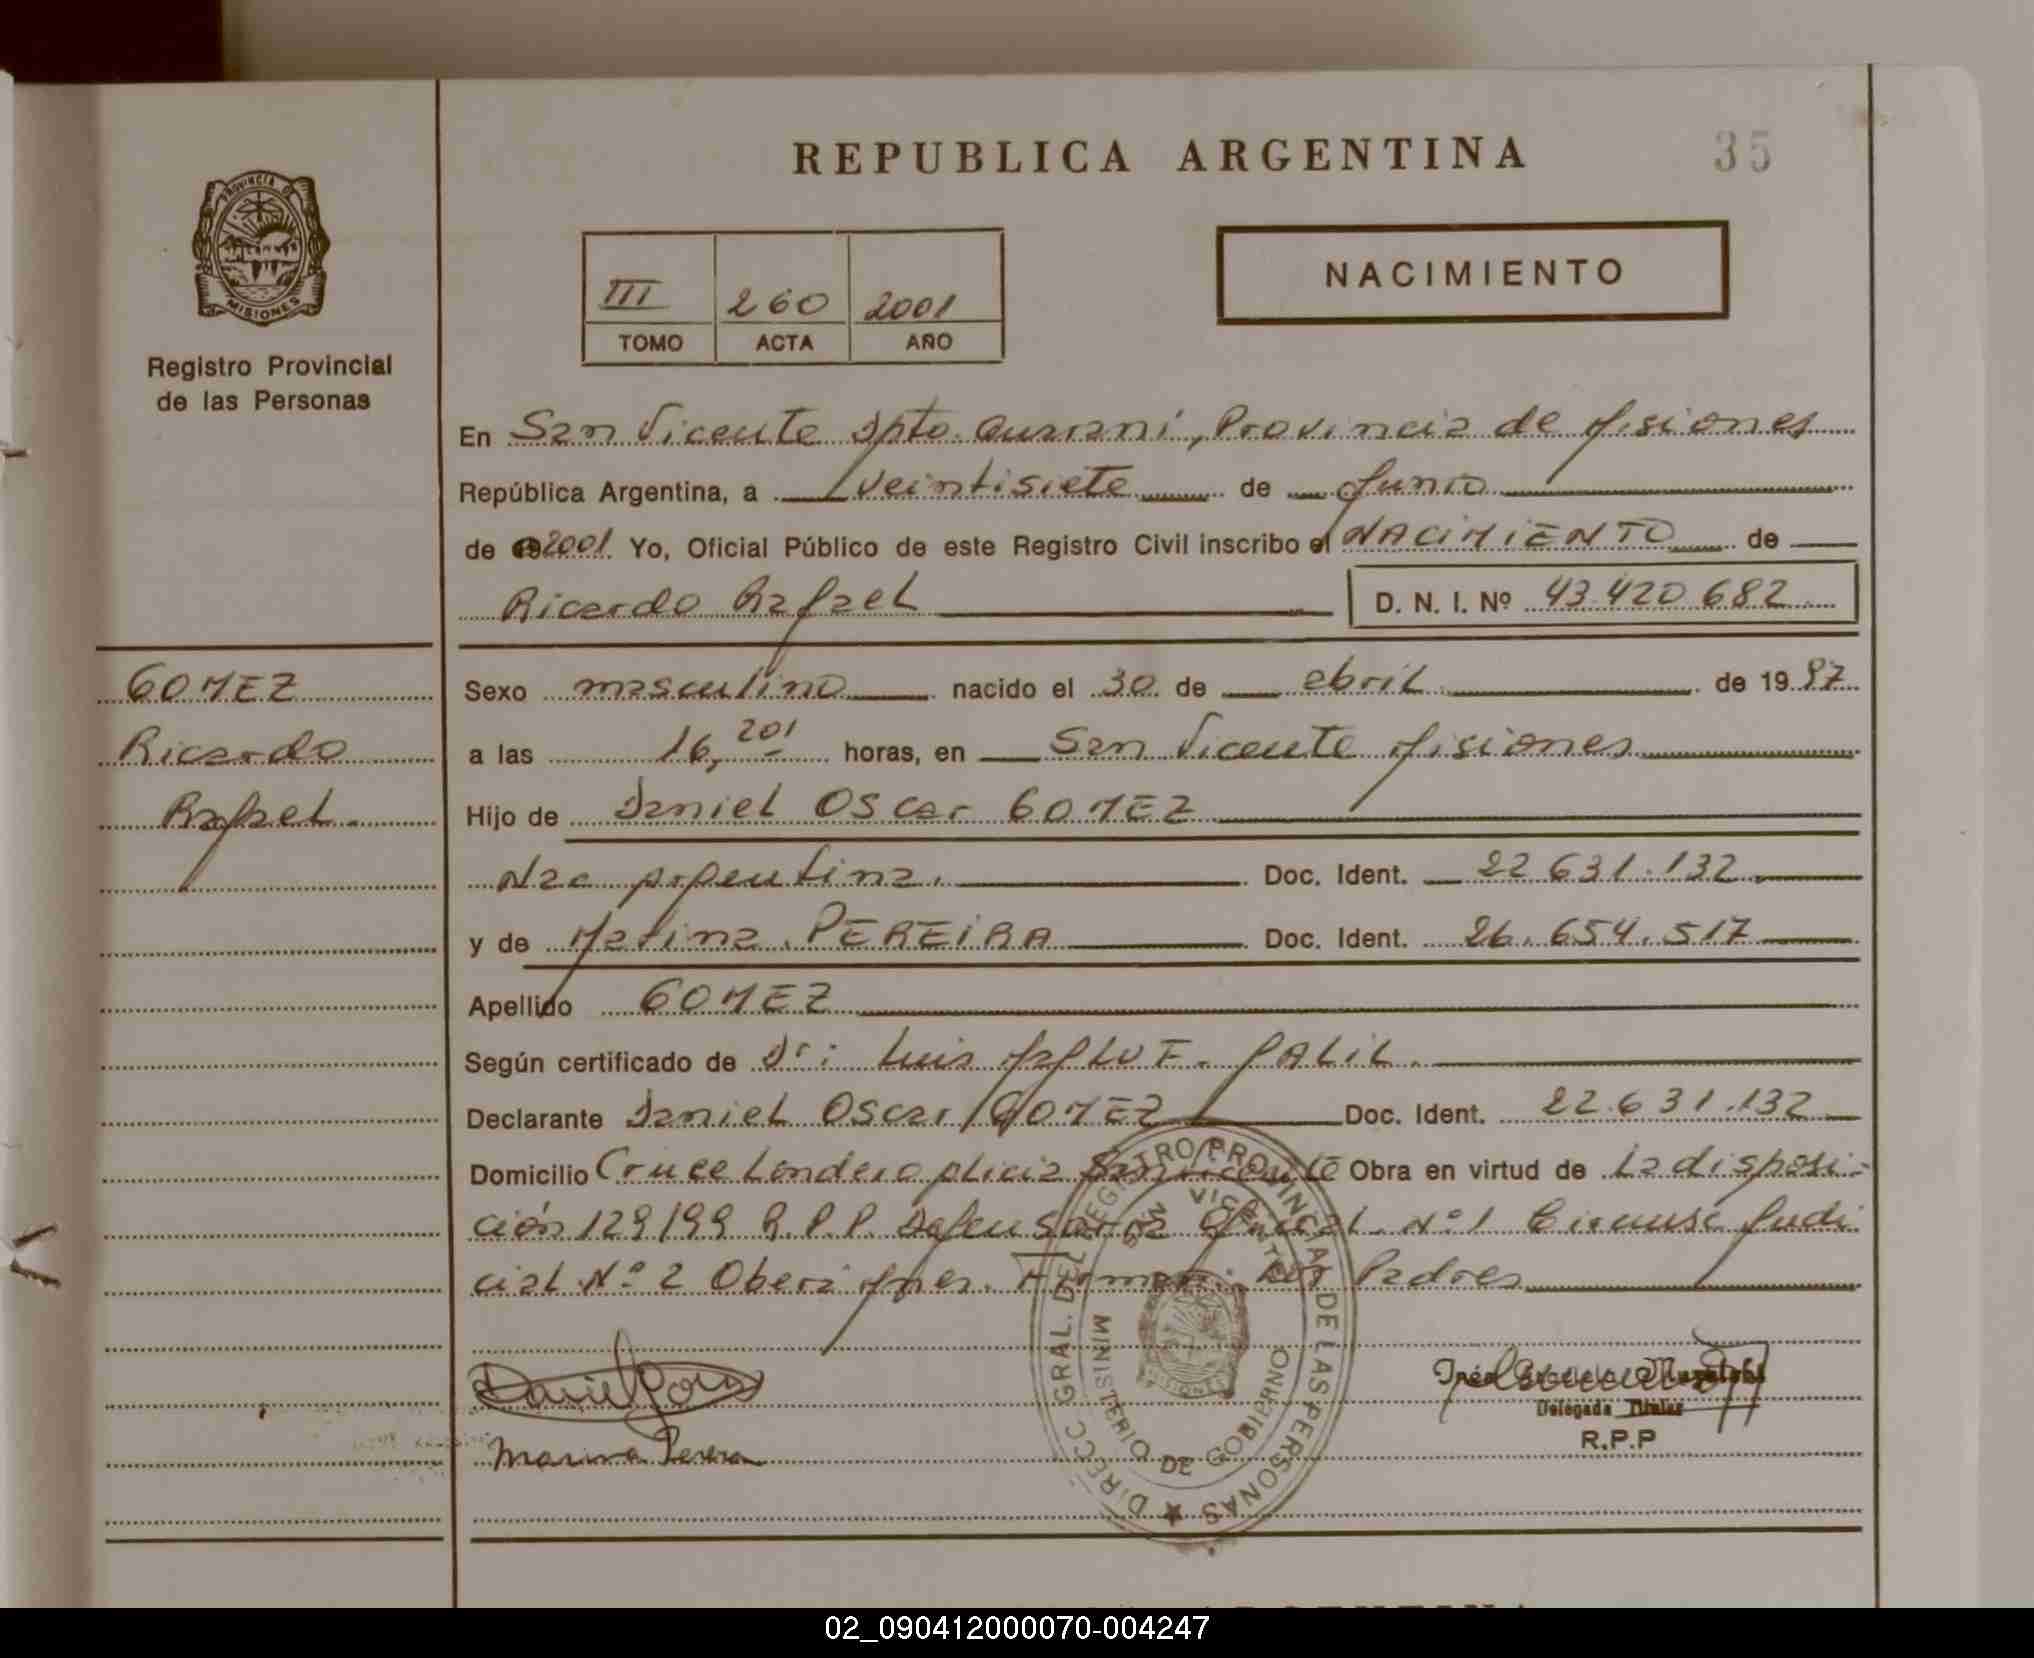 REPUBLICA ARGENTINA
35
PROVINCIA DE
MISIONES
Registro Provincial
de las Personas
III 260 2001
TOMO ACTA AÑO
NACIMIENTO
En San Vicente Dpto. Guarani, Provincia de Misiones
República Argentina, a veintisiete de Junio
de 2001 Yo, Oficial Público de este Registro Civil inscribo el NACIMIENTO de
Ricardo Rafael D. N. I. Nº 43.420.682
GOMEZ
Ricardo
Rafael.
Sexo masculino nacido el 30 de abril de 1997
a las 16,20 horas, en San Vicente Misiones
Hijo de Daniel Oscar GOMEZ
Nac argentina. Doc. Ident. 22 631.132
y de Marina PEREIRA Doc. Ident. 26.654.517
Apellido GOMEZ
Según certificado de Dr: Luis
Declarante Daniel Oscar GOMEZ Doc. Ident. 22.631.132
Domicilio Cruce Londero San Vicente Obra en virtud de la disposi-
ción 129/99 R.P.P. Defensoria Oficial Nº 1 Circunsc Judi
cial Nº 2 Obera Mnes. Firman: Los Padres
DIRECC GRAL. DEL REGISTRO PROVINCIAL DE LAS PERSONAS
SAN VICENTE
MINISTERIO DE GOBIERNO
MISIONES
Daniel Gomez
Marina Pereira
Delegada Titular
R.P.P
02_090412000070-004247